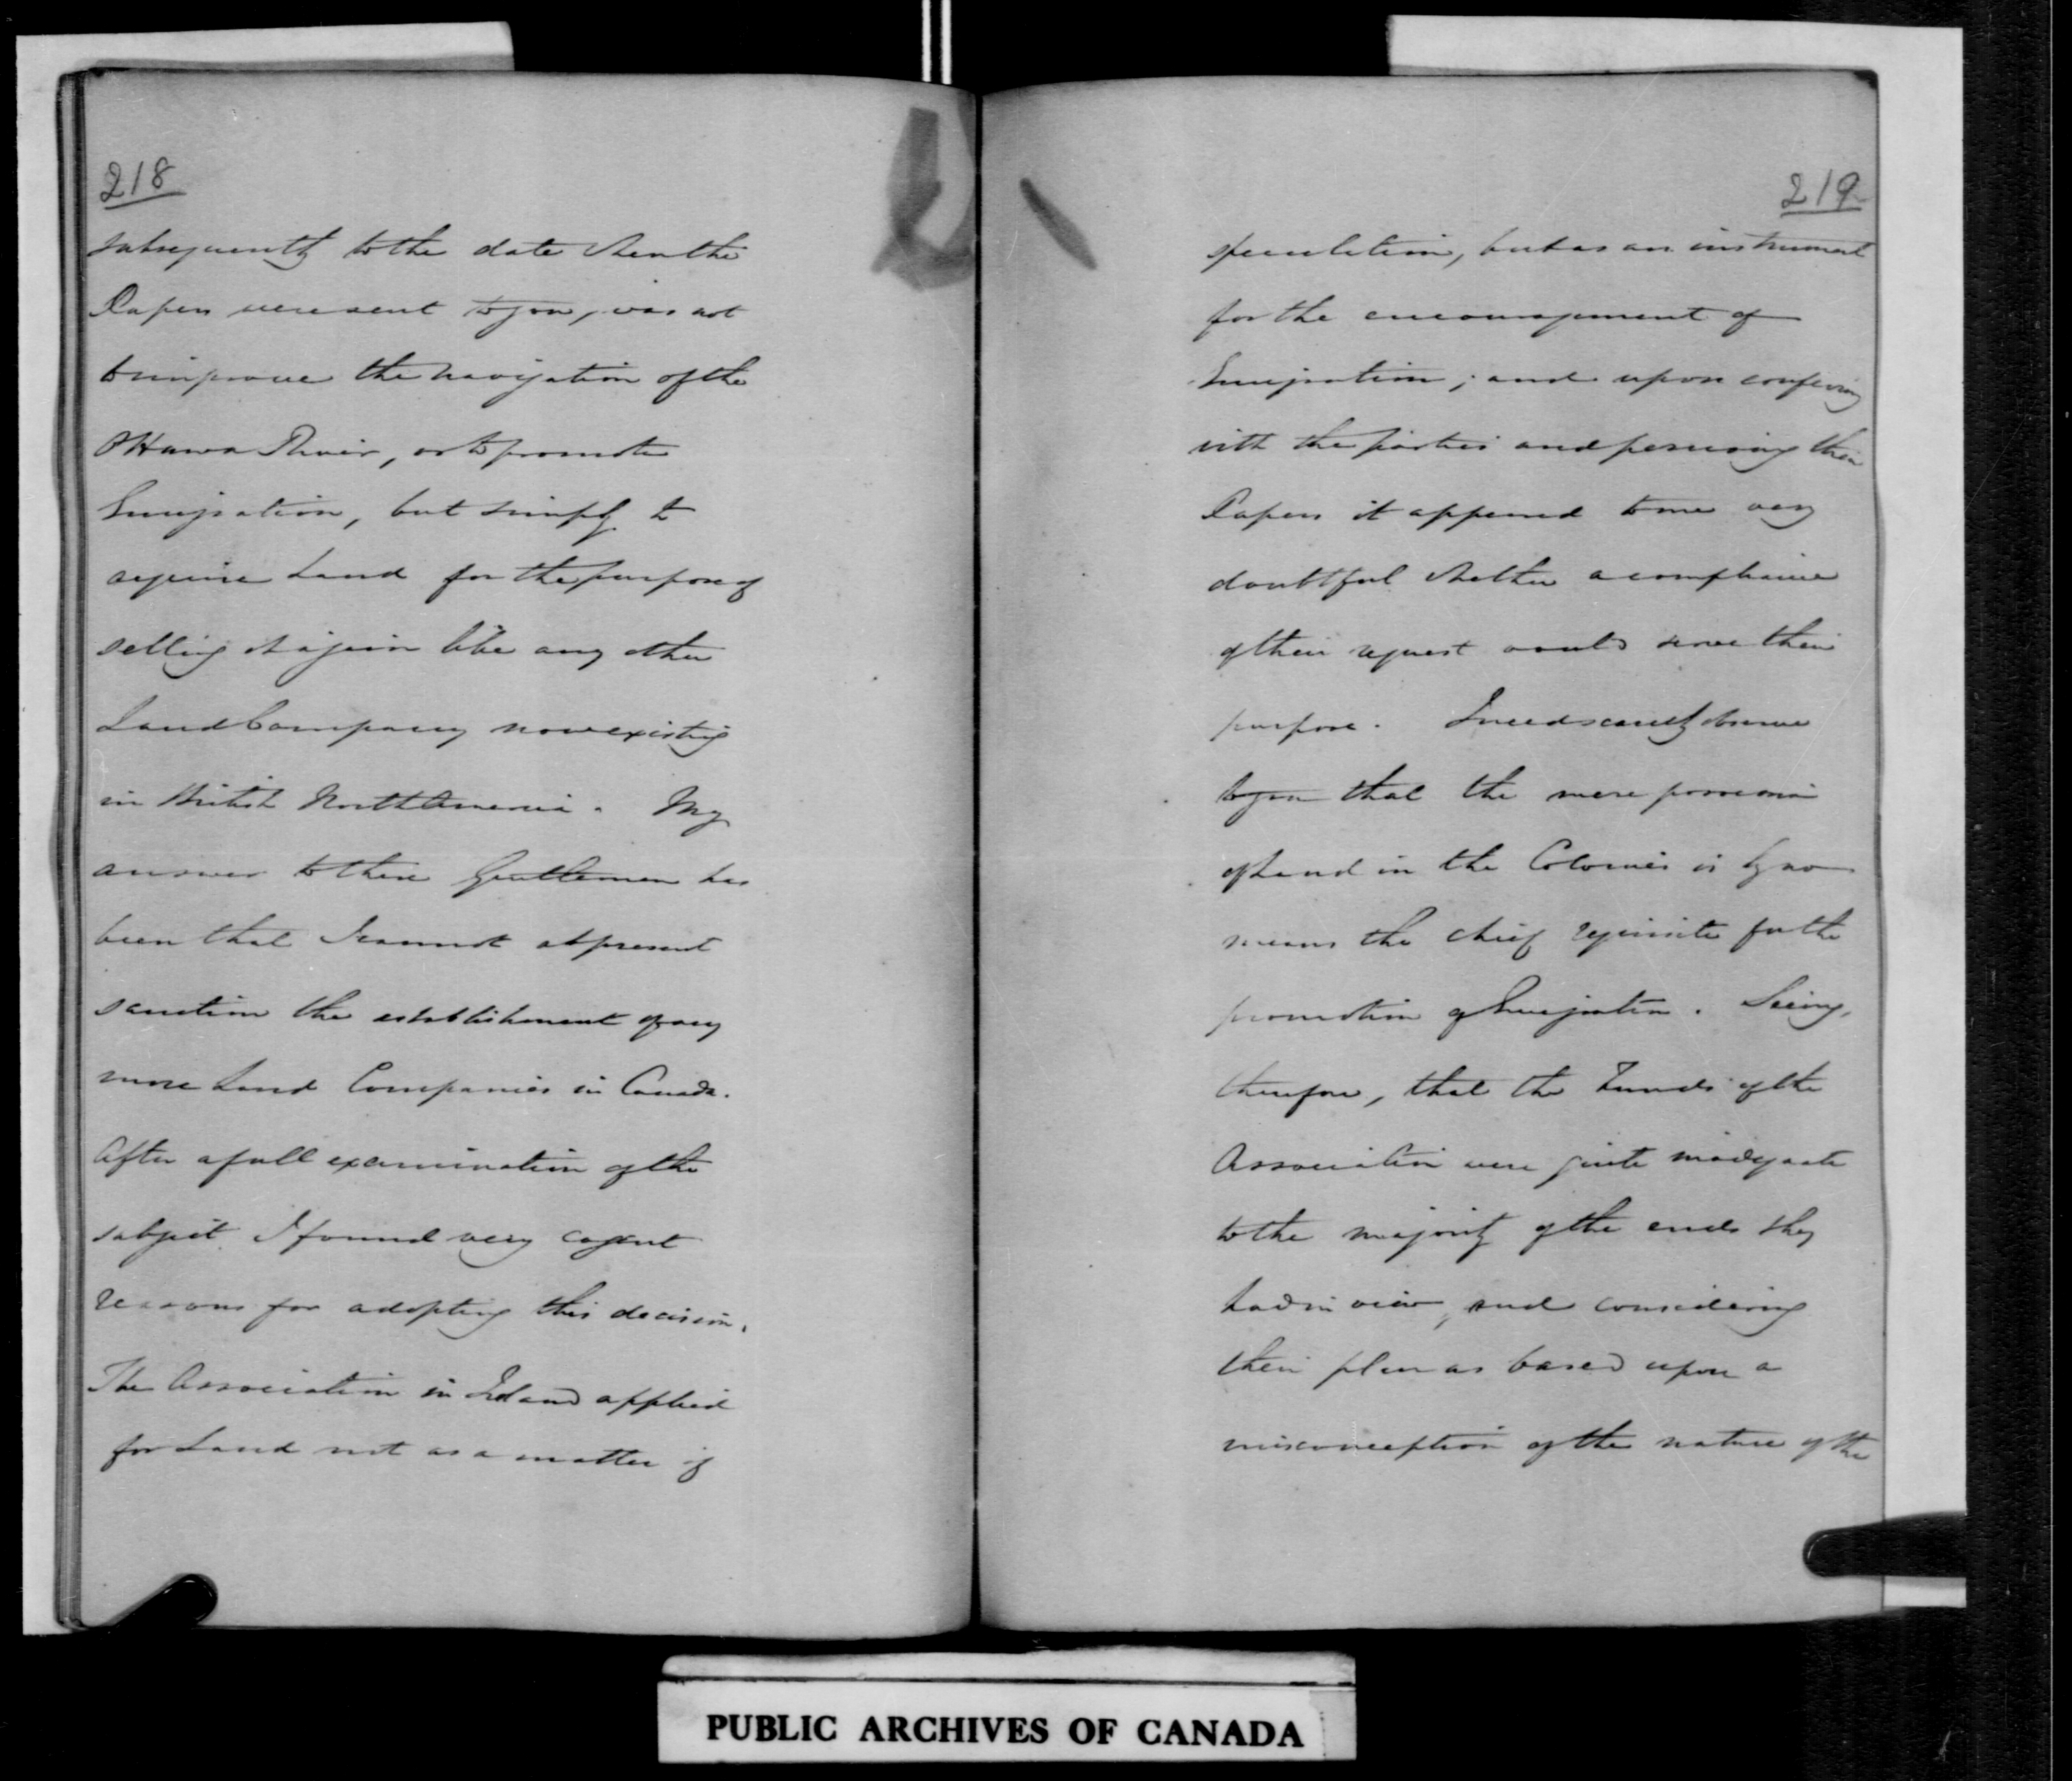 218
subsequently to the date when the
Papers were sent to you, was not
to improve the navigation of the
Ottawa River, or to promote
Emigration, but simply to
acquire Land for the purpose of
selling it again like any other
Land Company now existing
in British North America. My
answer to these Gentlemen has
been that I cannot at present
sanction the establishment of any
more Land Companies in Canada.
After a full examination of the
subject I found very cogent
reasons for adopting this decision.
The Association in Ireland applied
for Land not as a matter of
219
speculation, but as an instrument
for the encouragement of
Emigration; and upon conferring
with the parties and perusing their
Papers it appeared to me very
doubtful whether a compliance
of their request would serve their
purpose. I need scarcely observe
to you that the mere possession
of Land in the Colonies is by no
means the chief requisite for the
promotion of Emigration. Seeing,
therefore, that the Funds of the
Association were quite inadequate
to the majority of the ends they
had in view, and considering
their plan as based upon a
misconception of the nature of the
PUBLIC ARCHIVES OF CANADA